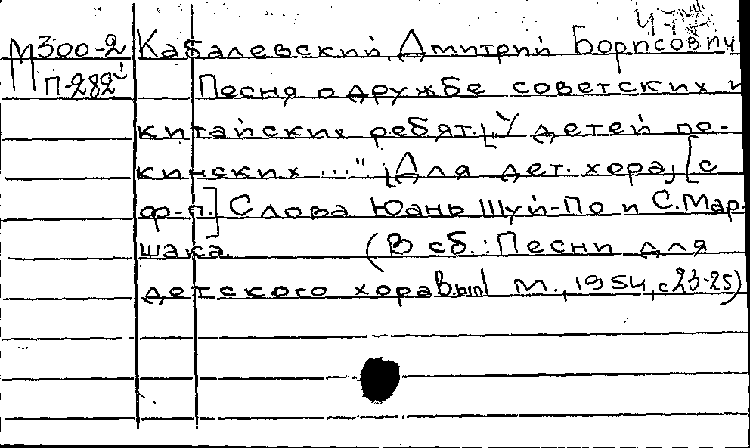 М300-2 Кабалевский, Дмитрий Борисович
П-282 Песня о дружбе советских и
китайских ребят. [„У детей пе-
кинских ..."] [Для дет. хора, [с
ф-п.] Слова Юань Шуй-По и С. Мар-
шака. (В сб.: Песни для
детского хора Вып М., 1954, с 23-25)